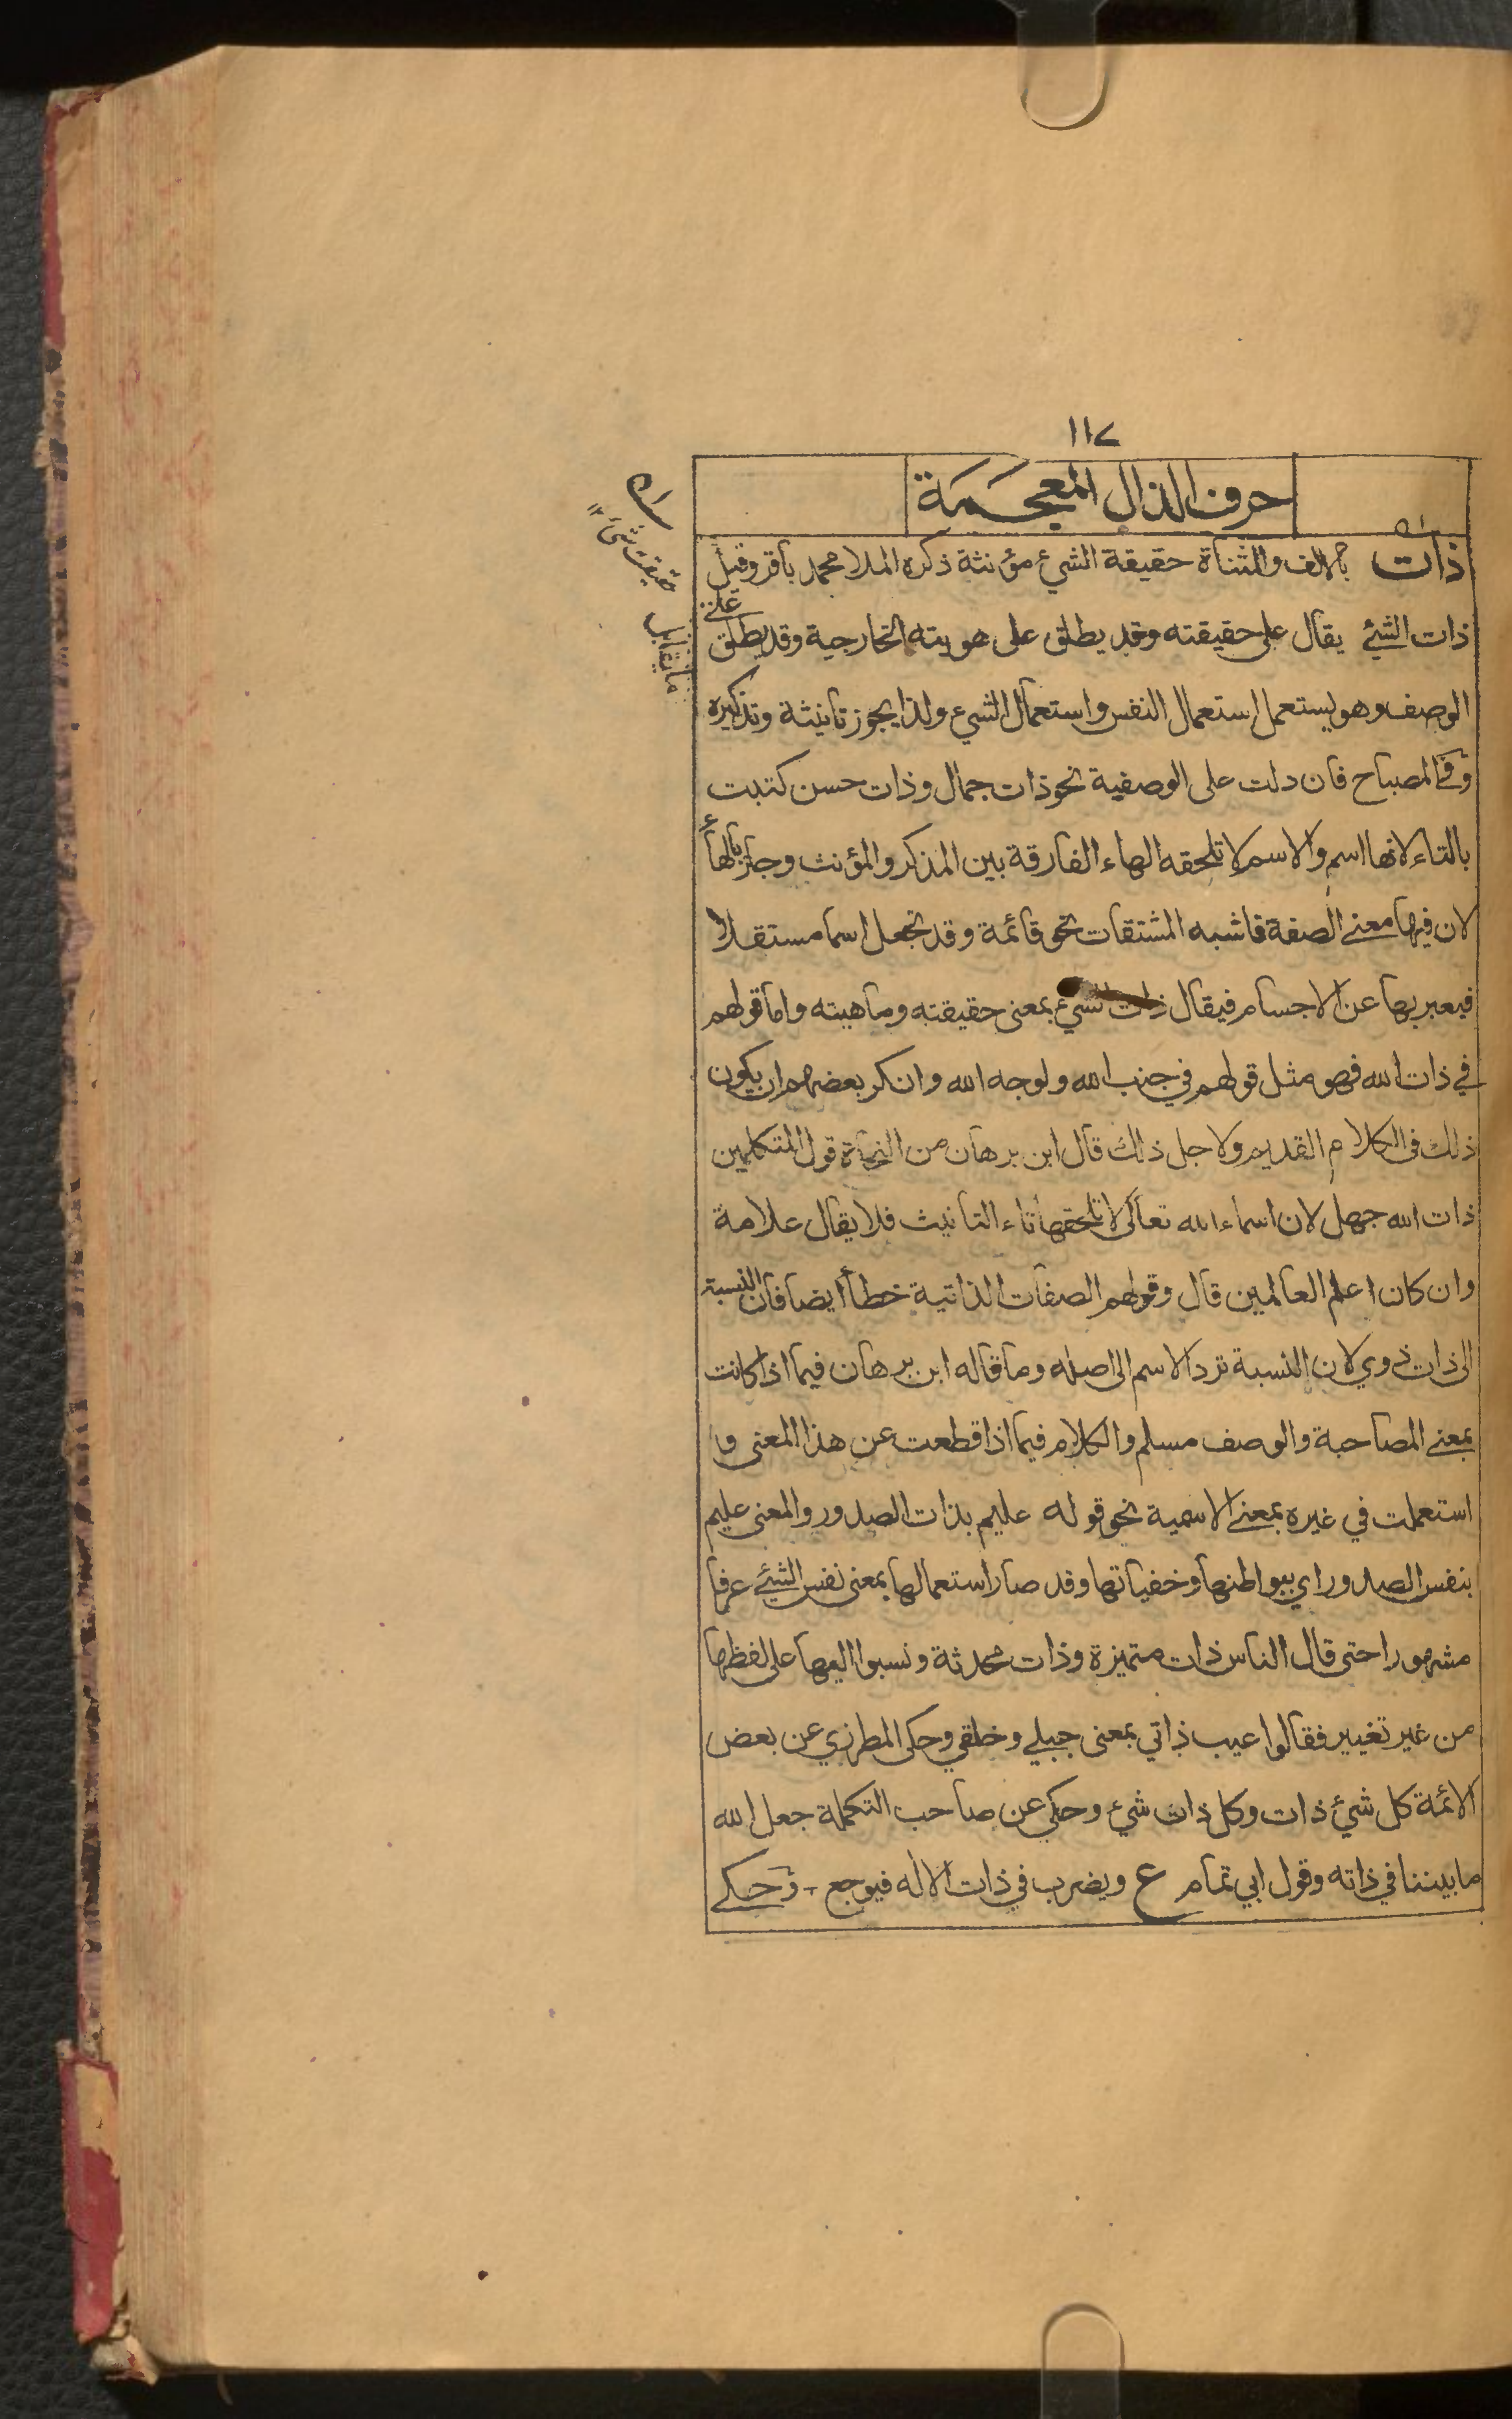 ١١٧
حرف الذال المعجمة
ذات بالالف والمثناة حقيقة الشيء مؤنثة ذكره الملا محمد باقر وقيل
ذات الشيئ يقال على حقيقته وقد يطلق على هويته الخارجية وقد يطلق على
الوصف وهو يستعمل استعمال النفس واستعمال الشيء ولذا يجوز تانيثة وتذكيره
وفي المصباح فان دلت على الوصفية نحو ذات جمال وذات حسن كتبت
بالتاء لانها اسم والاسم لا تلحقه الهاء الفارقة بين المذكر والمؤنث وجاز بالهاء
لان فيها معنے الصفة فاشبه المشتقات نحو قائمة وقد تجعل اسما مستقلا
فيعبر بها عن الاجسام فيقال ذات الشيء بمعنى حقيقته وماهيته واما قولهم
في ذات الله فهو مثل قولهم في جنب الله ولوجه الله وانكر بعضهم ان يكون
ذلك فى الكلام القديم ولاجل ذلك قال ابن برهان من النحاة قول المتكلمين
ذات الله جهل لان اسماء الله تعالى لا تلحقها تاء التانيث فلا يقال علامة
وان كان اعلم العالمين قال وقولهم الصفات الذاتية خطأ ايضا فان النسبة
الى ذات ذوي لان النسبة ترد الاسم الى اصله وما قاله ابن برهان فيما اذا كانت
بمعنے المصاحبة والوصف مسلم والكلام فيما اذا قطعت عن هذا المعنى و
استعملت في غيره بمعنے الاسمية نحو قوله عليم بذات الصدور والمعنى عليم
بنفس الصدور اي ببواطنها وخفياتها وقد صار استعمالها بمعنى نفس الشيئ عرفا
مشهورا حتى قال الناس ذات متميزة وذات محدثة ونسبوا اليها على لفظها
من غير تغيير فقالوا عيب ذاتي بمعنى جبلي وخلقي وحكى المطرزي عن بعض
الائمة كل شئ ذات وكل ذات شئ وحكي عن صاحب التكملة جعل الله
ما بيننا في ذاته وقول ابي تمام ع ويضرب في ذات الاله فيوجع - وحكے
حقيقت شئ ١٢